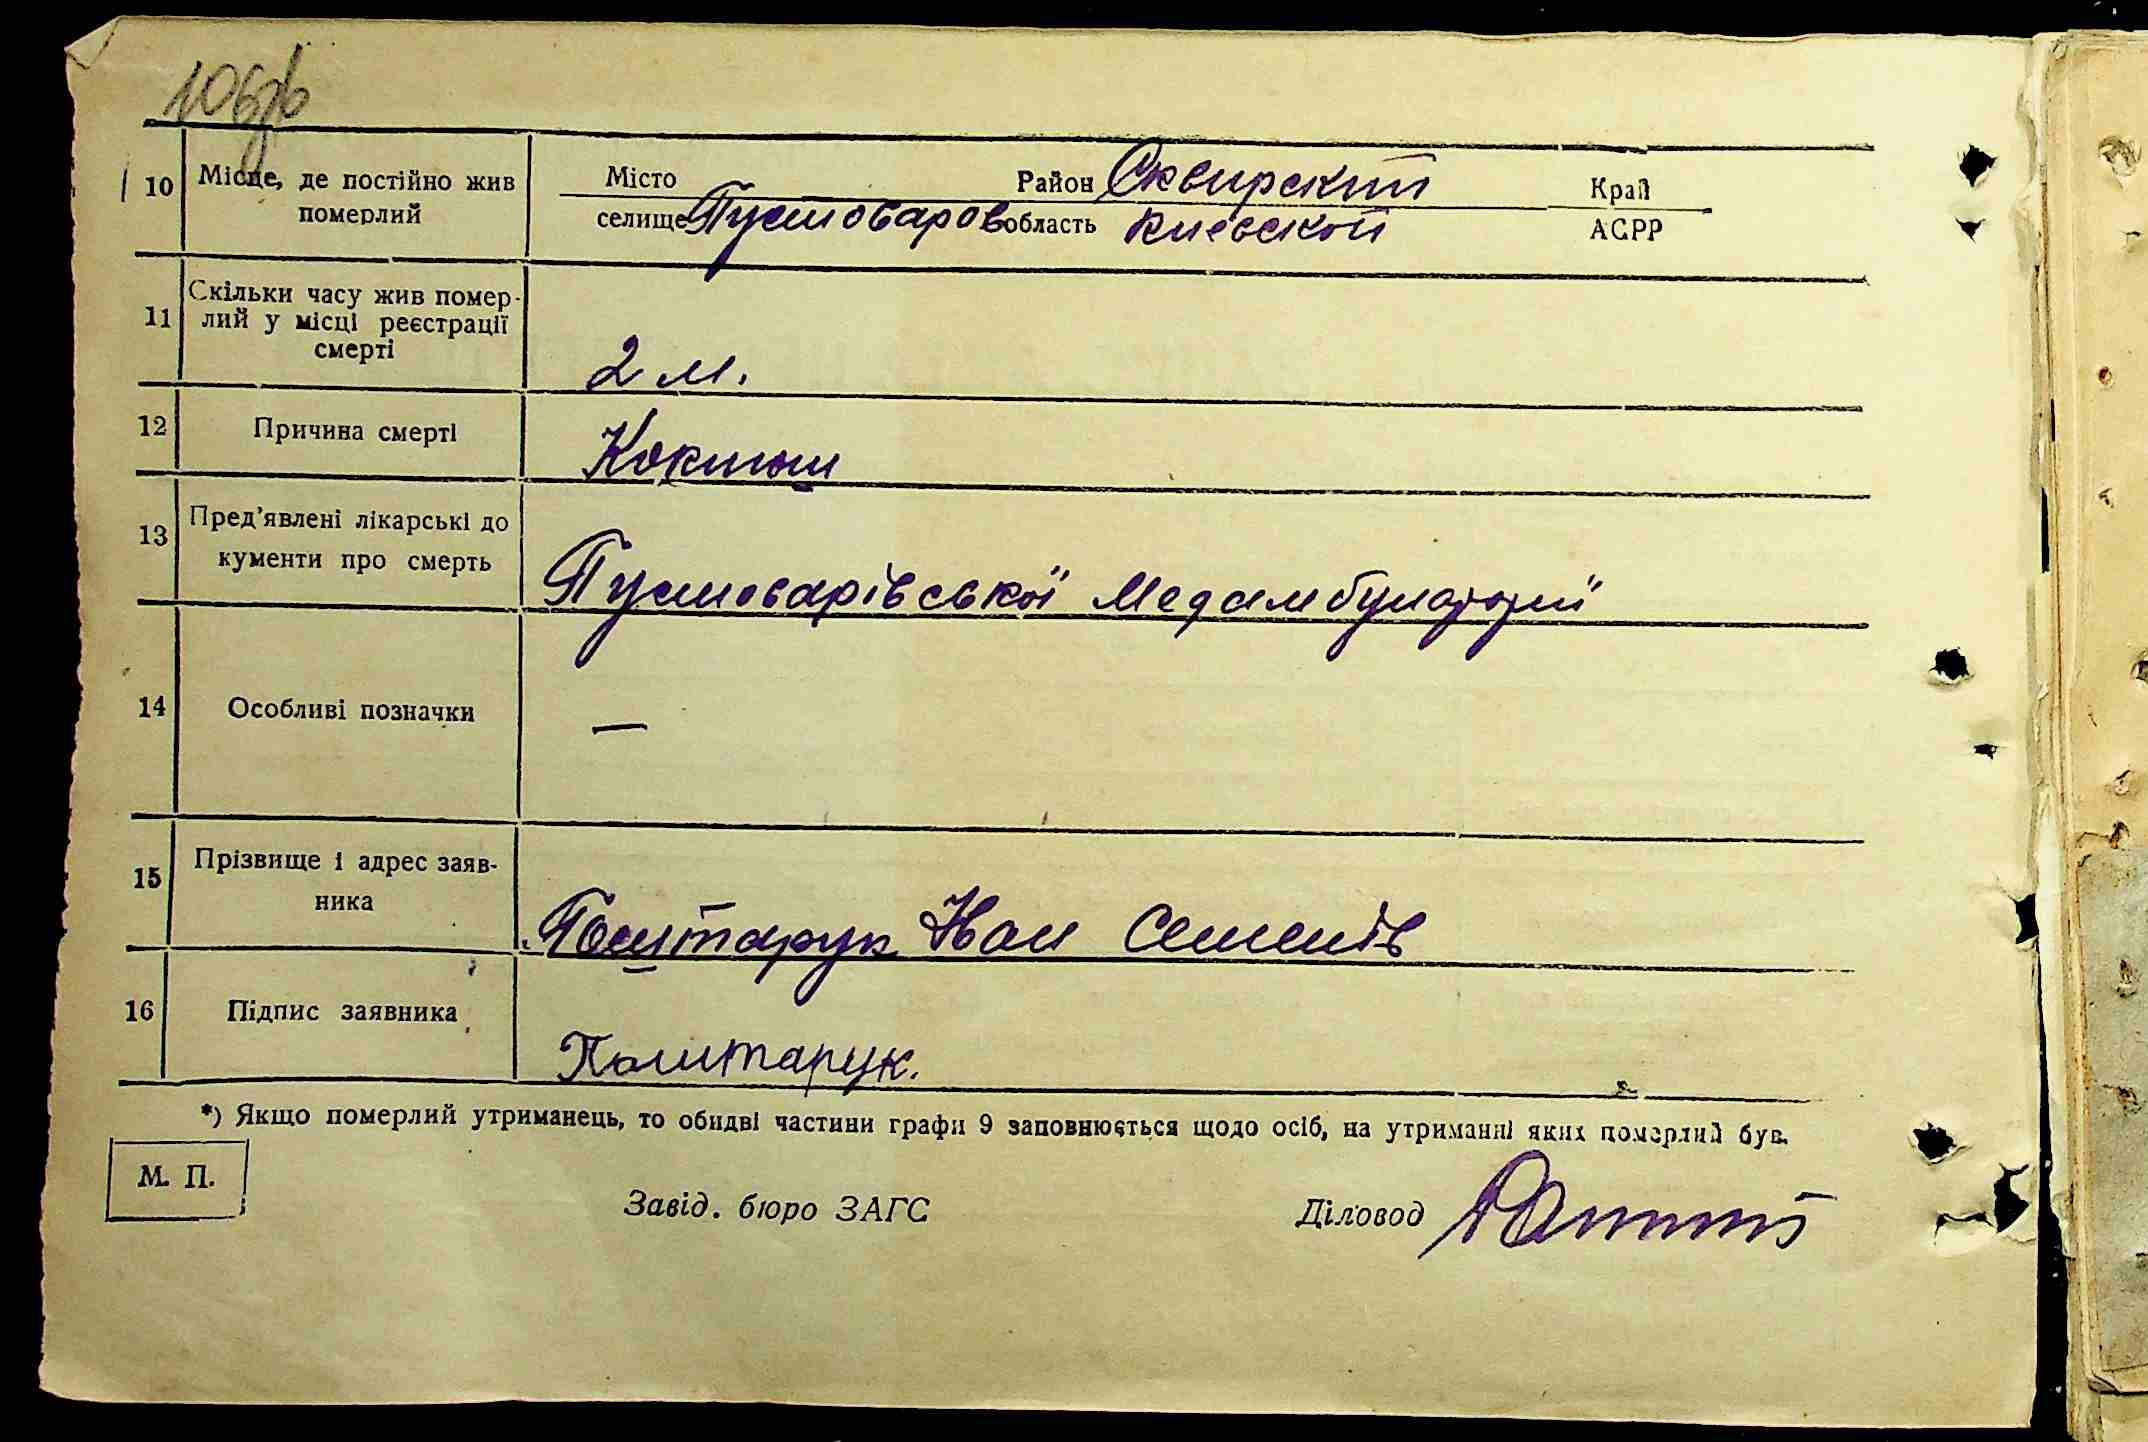 106зв
10 Місце, де постійно жив померлий
Місто Район Сквирский Край
селище Пустоваров область Киевской АСРР
11 Скільки часу жив помер-
лий у місці реєстрації
смерті
2 м.
12 Причина смерті
Коклюш
13 Пред'явлені лікарські до
кументи про смерть
Пустоварівської Медамбулаторії
14 Особливі позначки
—
15 Прізвище і адрес заяв-
ника
Іван Семенів
16 Підпис заявника
*) Якщо померлий утриманець, то обидві частини графи 9 заповнюється щодо осіб, на утриманні яких померлий був.
М. П.
Завід. бюро ЗАГС Діловод